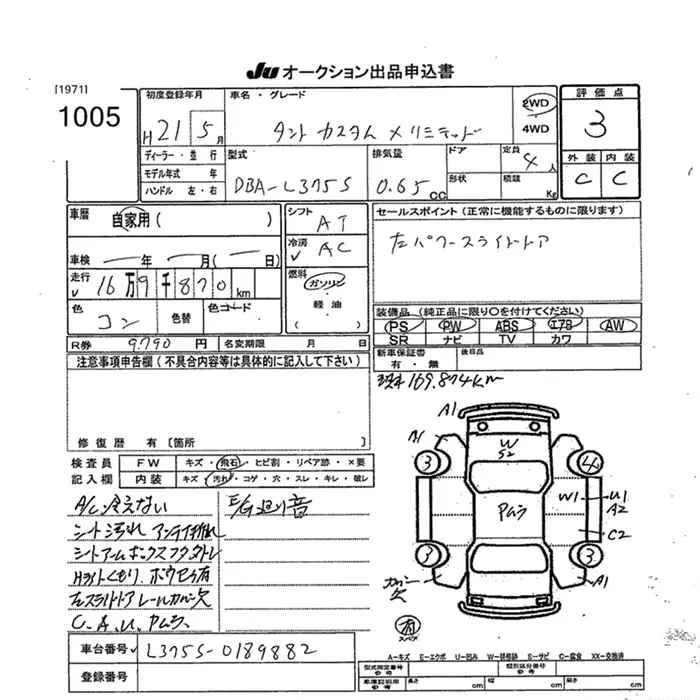 JU オークション出品申込書
[1971]
1005
初度登録年月
H 21 5 月
車名・グレード
タント カスタム メ リミテッド
2WD
4WD
評価点
3
外装 内装
C C
ディーラー・並行
モデル年式 年
ハンドル 左・右
型式
DBA-L375S
排気量
0.65 CC
ドア
形状
定員
4 人
積載
Kg
車歴
自家用( )
車検 ― 年 ― 月(― 日)
走行
16万9千870 km
色
コン
色替
色コード
シフト
AT
冷房
AC
燃料
ガソリン
軽油
( )
セールスポイント(正常に機能するものに限ります)
左パワースライドドア
装備品(純正品に限り○を付けてください)
PS PW ABS エアB AW
SR ナビ TV カワ
R券 9.790 円
名変期限 月 日
新車保証書
有・無
後日品
注意事項申告欄(不具合内容等は具体的に記入して下さい)
現車169.874km
修復歴 有[箇所 ]
検査員
記入欄
FW キズ・飛石・ヒビ割・リペア跡・×要
内装 キズ・汚れ・コゲ・穴・スレ・キレ・破レ
A/C冷えない
E/G廻り音
シート汚れ アンテナ
シートアームボックスフタ
Hライトくもり、ボウセラ有
左スライドドアレールカバー欠
C、A、U、Pムラ
A1
A1
W
S2
3
4
Pムラ
W1
U1
A2
C2
3
3
カバー
欠
A1
有
スペア
A-キズ E-エクボ U-凹み W-補修跡 S-サビ C-腐食 XX-交換済
車台番号 L375S-0189882
登録番号
型式指定番号
類別区分番号
長さ cm 幅 cm 高さ cm